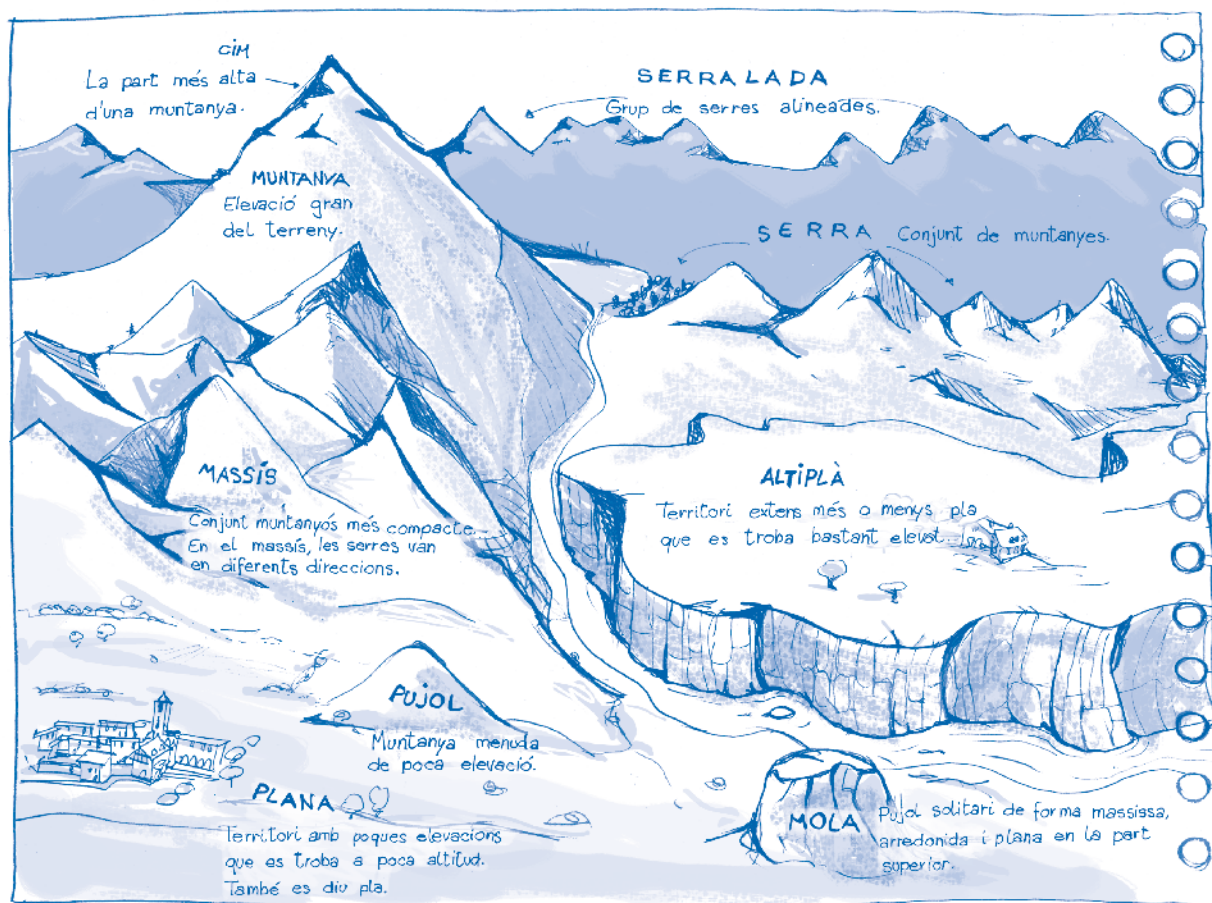 CIM
La part més alta
d'una muntanya.
SERRALADA
Grup de serres alineades.
MUNTANYA
Elevació gran
del terreny.
SERRA Conjunt de muntanyes.
MASSÍS
Conjunt muntanyós més compacte.
En el massís, les serres van
en diferents direccions.
ALTIPLÀ
Territori extens més o menys pla
que es troba bastant elevat.
PUJOL
Muntanya menuda
de poca elevació.
PLANA
Territori amb poques elevacions
que es troba a poca altitud.
També es diu pla.
MOLA
Pujol solitari de forma massissa,
arredonida i plana en la part
superior.